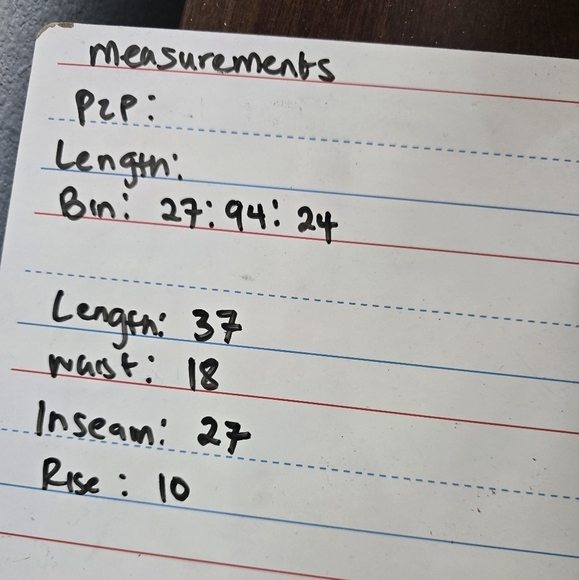 measurements
P2P:
Length:
Bin: 27: 94: 24
Length: 37
waist: 18
Inseam: 27
Rise: 10